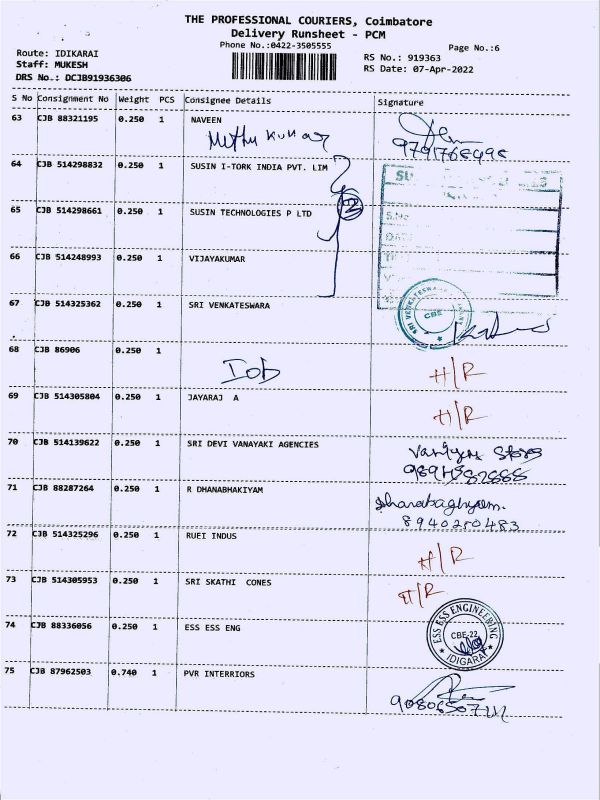 THE PROFESSIONAL COURIERS, Coimbatore
Delivery Runsheet - PCM
Phone No.:0422-3505555
Page No.:6
Route: IDIKARAI
Staff: MUKESH
DRS No.: DCJB91936306
RS No.: 919363
RS Date: 07-Apr-2022
S No Consignment No Weight PCS Consignee Details Signature
63 CJB 88321195 0.250 1 NAVEEN
Muthu Kumar
64 CJB 514298832 0.250 1 SUSIN I-TORK INDIA PVT. LIM
65 CJB 514298661 0.250 1 SUSIN TECHNOLOGIES P LTD
S.No
DATE
66 CJB 514248993 0.250 1 VIJAYAKUMAR
67 CJB 514325362 0.250 1 SRI VENKATESWARA
SRI VENKATESWARA
CBE
68 CJB 86906 0.250 1
IOB
H/R
69 CJB 514305804 0.250 1 JAYARAJ A
H/R
70 CJB 514139622 0.250 1 SRI DEVI VANAYAKI AGENCIES
Stores
71 CJB 88287264 0.250 1 R DHANABHAKIYAM
8940250483
72 CJB 514325296 0.250 1 RUEI INDUS
H/R
73 CJB 514305953 0.250 1 SRI SKATHI CONES
H/R
74 CJB 88336056 0.250 1 ESS ESS ENG
ESS ESS ENGINEERING
CBE-22
IDIGARAI
75 CJB 87962503 0.740 1 PVR INTERRIORS